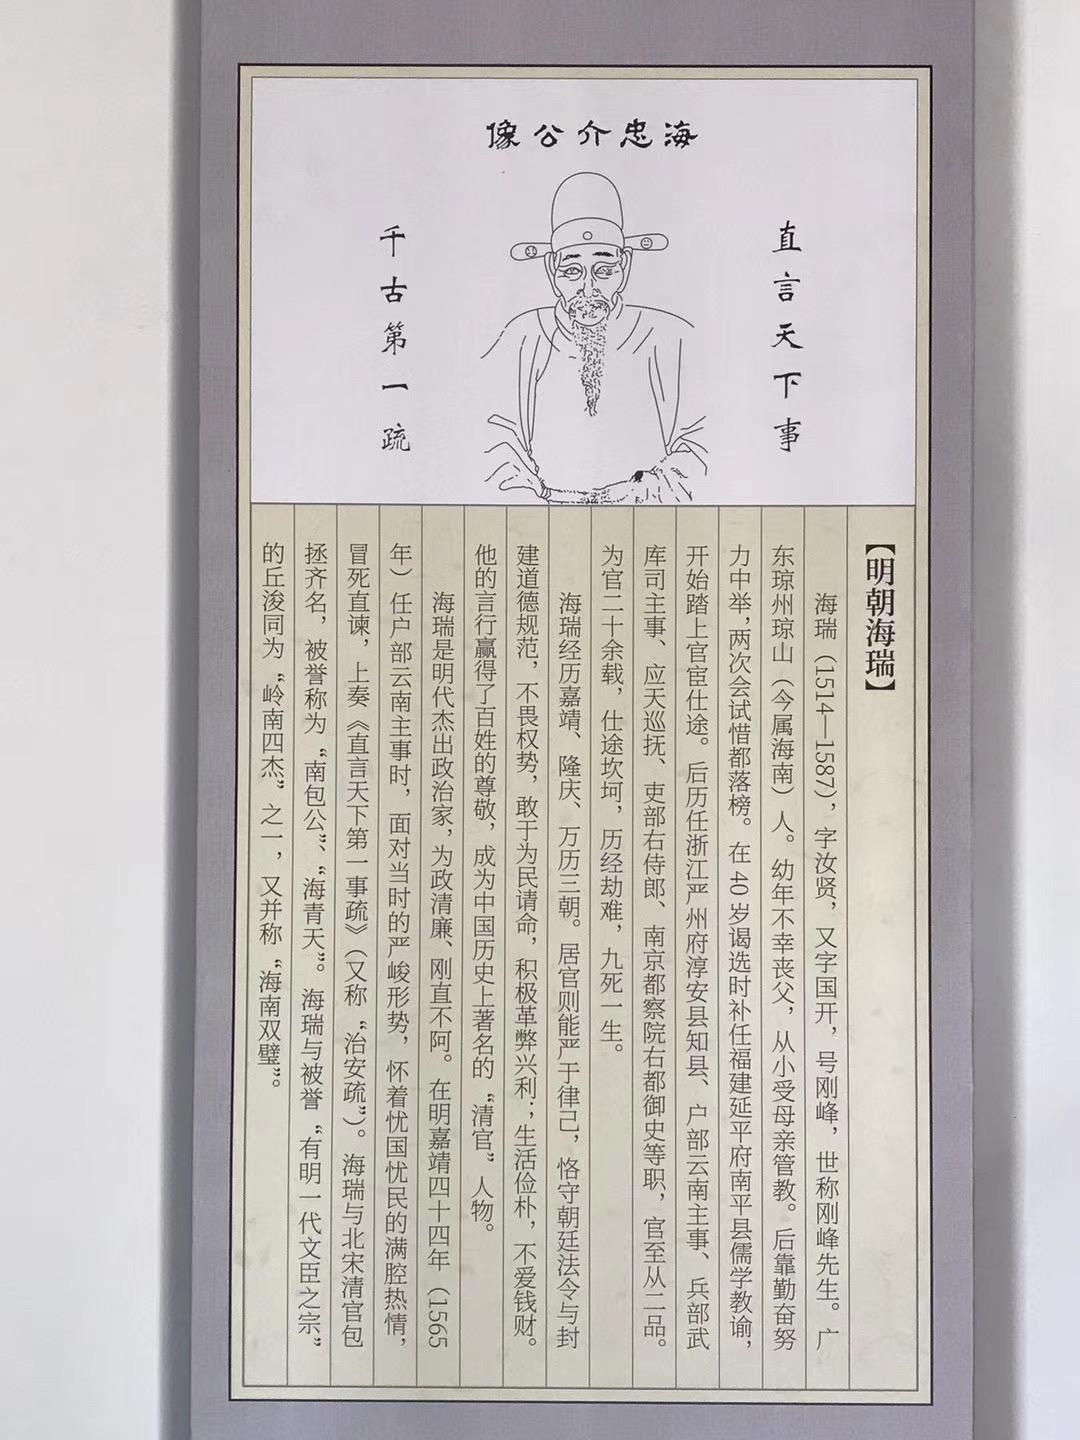 海忠介公像
直言天下事
千古第一疏
【明朝海瑞】
海瑞（1514—1587），字汝贤，又字国开，号刚峰，世称刚峰先生。广
东琼州琼山（今属海南）人。幼年不幸丧父，从小受母亲管教。后靠勤奋努
力中举，两次会试惜都落榜。在 40 岁谒选时补任福建延平府南平县儒学教谕，
开始踏上官宦仕途。后历任浙江严州府淳安县知县、户部云南主事、兵部武
库司主事、应天巡抚、吏部右侍郎、南京都察院右都御史等职，官至从二品。
为官二十余载，仕途坎坷，历经劫难，九死一生。
海瑞经历嘉靖、隆庆、万历三朝。居官则能严于律己，恪守朝廷法令与封
建道德规范，不畏权势，敢于为民请命，积极革弊兴利；生活俭朴，不爱钱财。
他的言行赢得了百姓的尊敬，成为中国历史上著名的“清官”人物。
海瑞是明代杰出政治家，为政清廉、刚直不阿。在明嘉靖四十四年（1565
年）任户部云南主事时，面对当时的严峻形势，怀着忧国忧民的满腔热情，
冒死直谏，上奏《直言天下第一事疏》（又称“治安疏”）。海瑞与北宋清官包
拯齐名，被誉称为“南包公”、“海青天”。海瑞与被誉“有明一代文臣之宗”
的丘浚同为“岭南四杰”之一，又并称“海南双璧”。